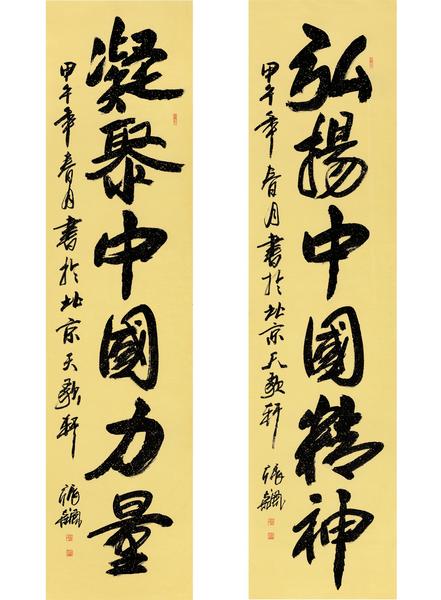 弘揚中國精神
甲午年春月書於北京天歌軒
凝聚中國力量
甲午年春月書於北京天歌軒